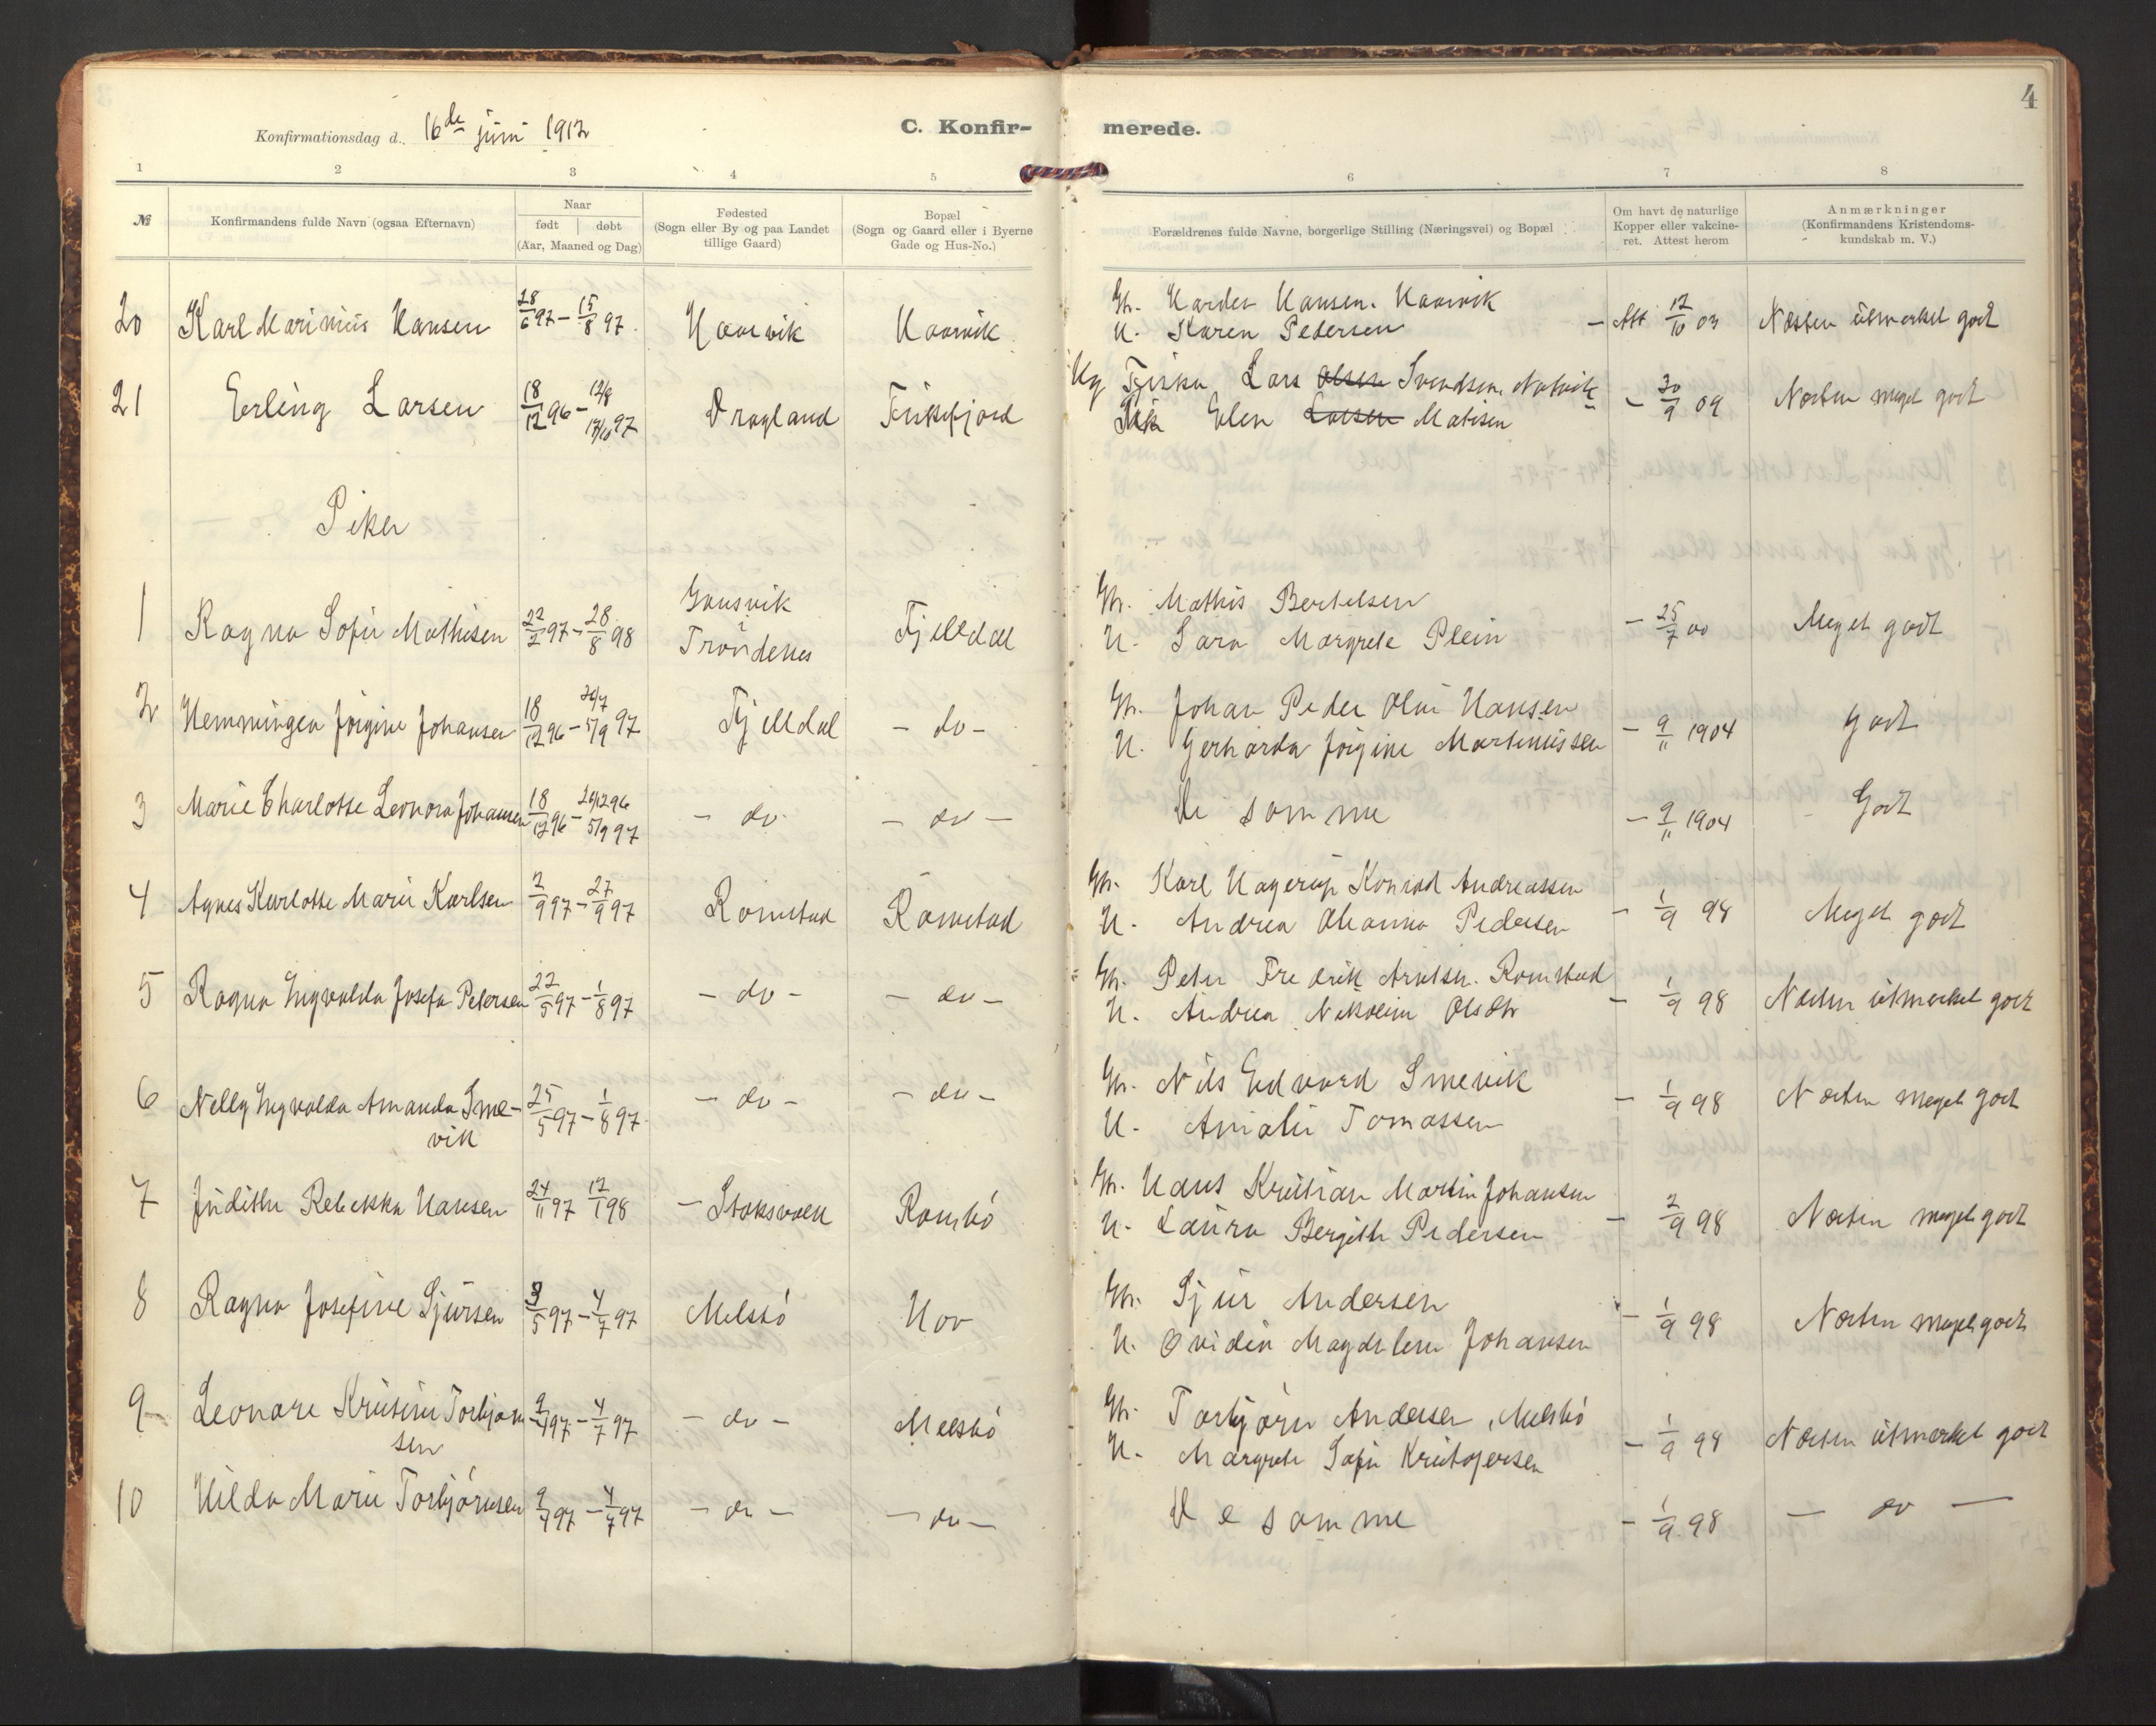 4
Konfirmationsdag d. 16de juni 1912
C. Konfir- merede.
1 2 3 4 5 6 7 8
№
Konfirmandens fulde Navn (ogsaa Efternavn)
Naar
født | døbt
(Aar, Maaned og Dag)
Fødested
(Sogn eller By og paa Landet
tillige Gaard)
Bopæl
(Sogn og Gaard eller i Byerne
Gade og Hus-No.)
Forældrenes fulde Navne, borgerlige Stilling (Næringsvei) og Bopæl
Om havt de naturlige
Kopper eller vakcine-
ret. Attest herom
Anmærkninger
(Konfirmandens Kristendoms-
kundskab m. V.)
20 Karl Marinius Hansen 28/6 97 – 15/8 97. Haarvik Haarvik
Gm. Harder Hansen. Haarvik
H. Karen Pedersen
– Att 12/10 03 Næsten utmerket godt
21 Erling Larsen 18/12 96 – 12/8 17/10 97 Dragland Fiskefjord
Lars Olsen Svendsen
Elen Larsen Matisen
– 30/9 09 Næsten meget godt
Piker
1 Ragna Sofie Mathisen 22/2 97 – 28/8 98 Gausvik i Trondenes Fjelldal
Gm. Mathis Bertelsen
H. Sara Margrete Plein
– 25/7 00 Meget godt
2 Hemmingea Jørgine Johansen 18/12 96 – 26/7 5/9 97 Fjelldal – do –
Gm. Johan Peder Olai Hansen
H. Gerharda Jørgine Martinussen
– 9/11 1904 godt
3 Marie Charlotte Leonora Johansen 18/12 96 – 26/12 96 5/9 97 – do – – do –
De samme
– 9/11 1904 Godt
4 Agnes Karlotte Marie Karlsen 2/9 97 – 27/9 97 Ramstad Ramstad
Gm. Karl Hagerup Konrad Andreassen
H. Andrea Oleanna Pedersen
– 1/9 98 Meget godt
5 Ragna Ingvalda Josefa Petersen 22/5 97 – 1/8 97 – do – – do –
Gm. Peter Fredrik Arntsen. Ramstad
H. Andrea Nikoline Olsdtr
– 1/9 98 Næsten utmerket godt
6 Nelly Ingvalda Amanda Sme-
vik 25/5 97 – 1/8 97. – do – – do –
Gm. Nils Edvard Smevik
H. Amalie Tomassen
– 1/9 98 Næsten meget godt
7 Judithe Rebekka Hansen 24/11 97 12/1 98 – Stoksvoll Rambø
Gm. Hans Kristian Martin Johansen
H. Laura Bergithe Pedersen
– 2/9 98 Næsten meget godt
8 Ragna Josefine Sjursen 9/5 97 – 4/7 97 Melsbø Hov
Gm. Sjur Andersen
H. Ovidia Magdelene Johansen
– 1/9 98 Næsten meget godt
9 Leonore Kristine Torbjørn
sen 9/4 97 – 4/7 97 – do – Melsbø
Gm. Torbjørn Andersen, Melsbø
H. Margrete Sofie Kristofersen
– 1/9 98 Næsten utmerket godt
10 Hilda Marie Torbjørnsen 9/4 97 – 4/7 97 – do – – do –
De samme
– 1/9 98 – do –